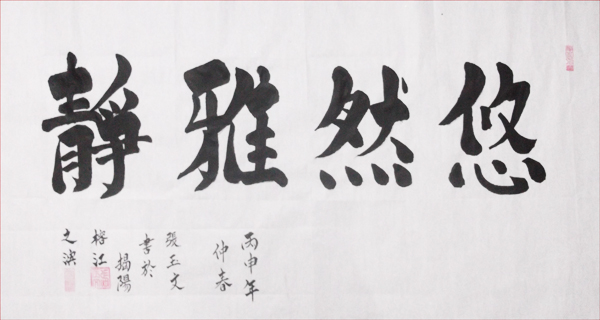 悠然雅靜
丙申年
仲春
張玉文
書於
揭陽
榕江
之濱